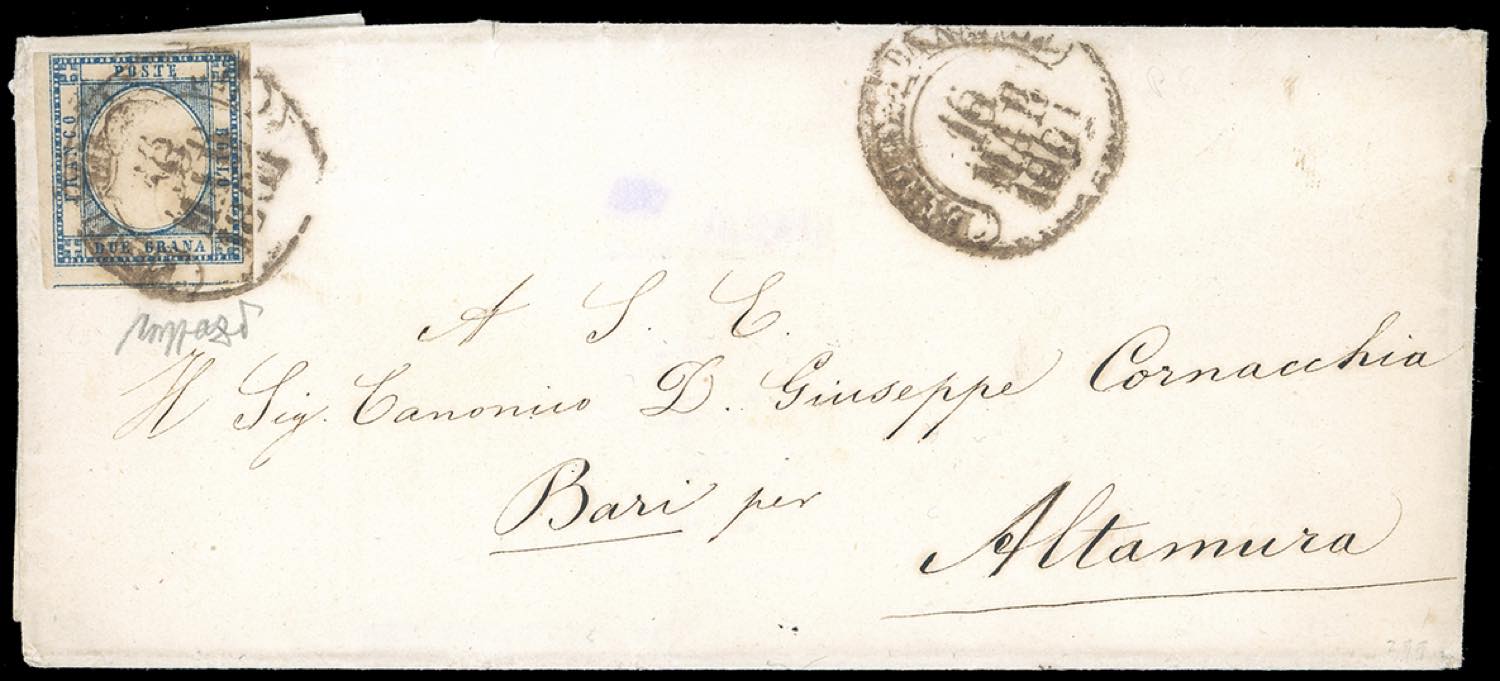 POSTE
FRANCO
BOLLO
DUE GRANA
16
MAR
1861
A S. E.
Il Sig. Canonico D. Giuseppe Cornacchia
Bari per
Altamura